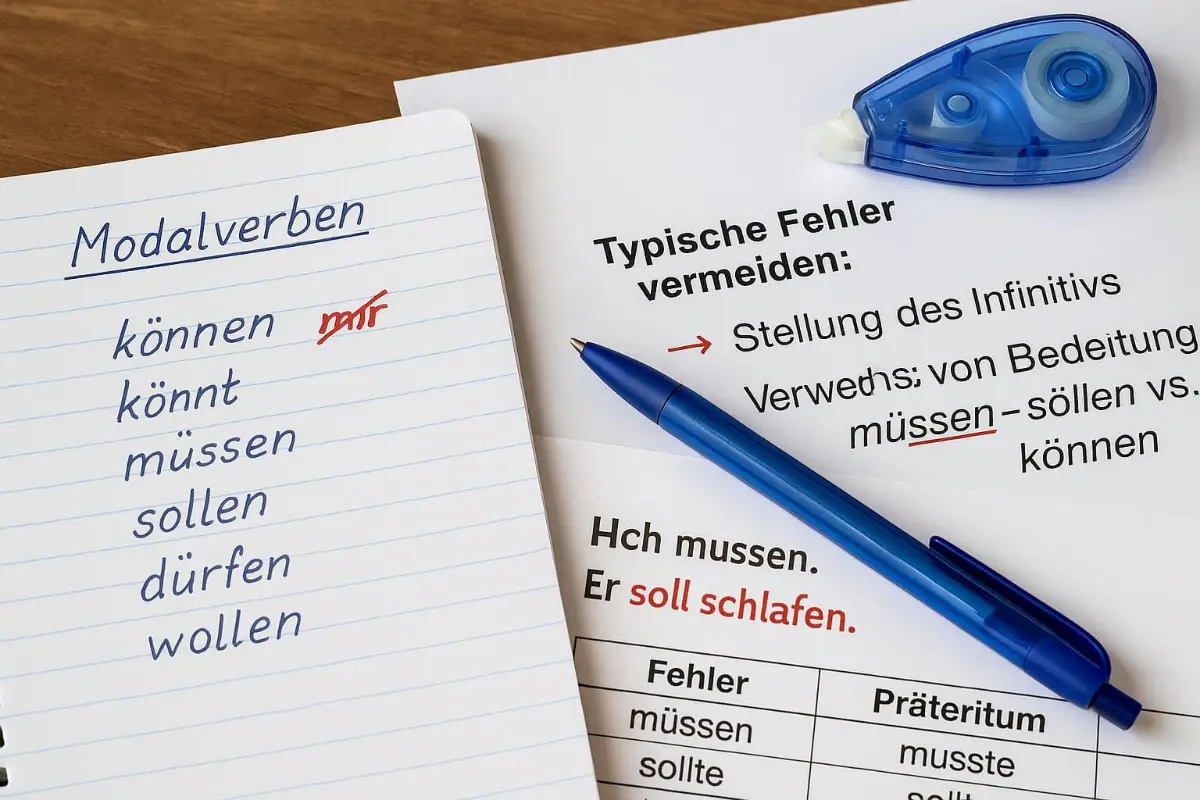 Modalverben
können
könnt
müssen
sollen
dürfen
wollen
Typische Fehler
vermeiden:
→ Stellung des Infinitivs
von Bedeitung
müssen – söllen vs.
können
Hch mussen.
Er soll schlafen.
Fehler Präteritum
müssen musste
sollte